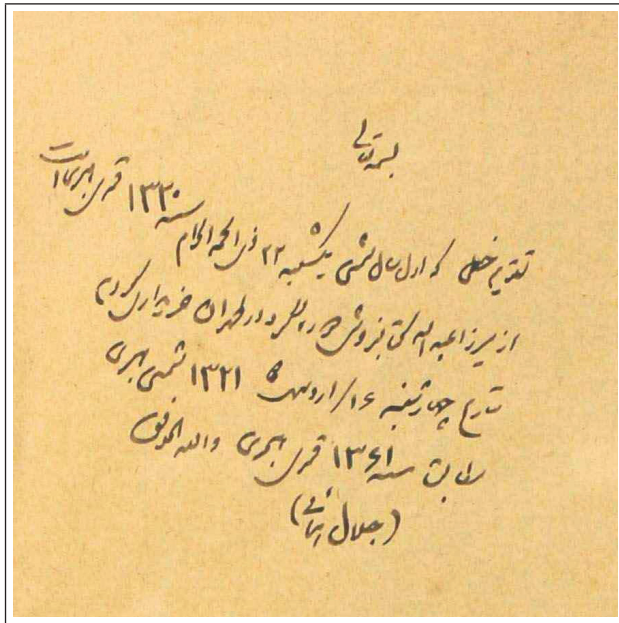 بسمه تعالی
تقویم خطی که اول سال شمسی یکشنبه ۲۲ ذی الحجه الحرام سنه ۱۳۳۰ قمری هجری است
از میرزا عبدالله کتابفروش دوره گرد در طهران خریداری کردم
بتاریخ چهارشنبه ۱۶/اردیبهشت ۱۳۲۱ شمسی هجری
مطابق سنه ۱۳۶۱ قمری هجری والله الموفق
(جلال)